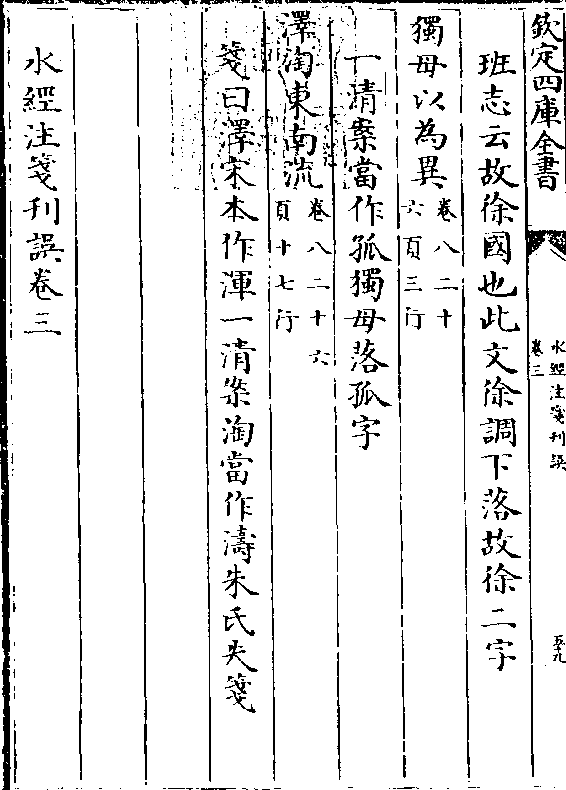 欽定四庫全書
水經注箋刊誤
卷三
五九
班志云故徐國也此文徐調下落故徐二字
獨母以為異
卷八二十
六頁三行
一清案當作孤獨母落孤字
澤淘東南流
卷八二十六
頁十七行
箋曰澤宋本作渾一清案淘當作濤朱氏失箋
水經注箋刊誤卷三